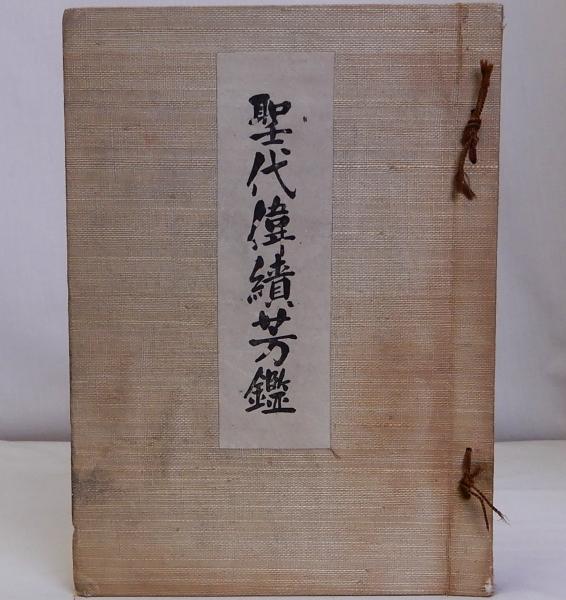 聖代偉績芳鑑